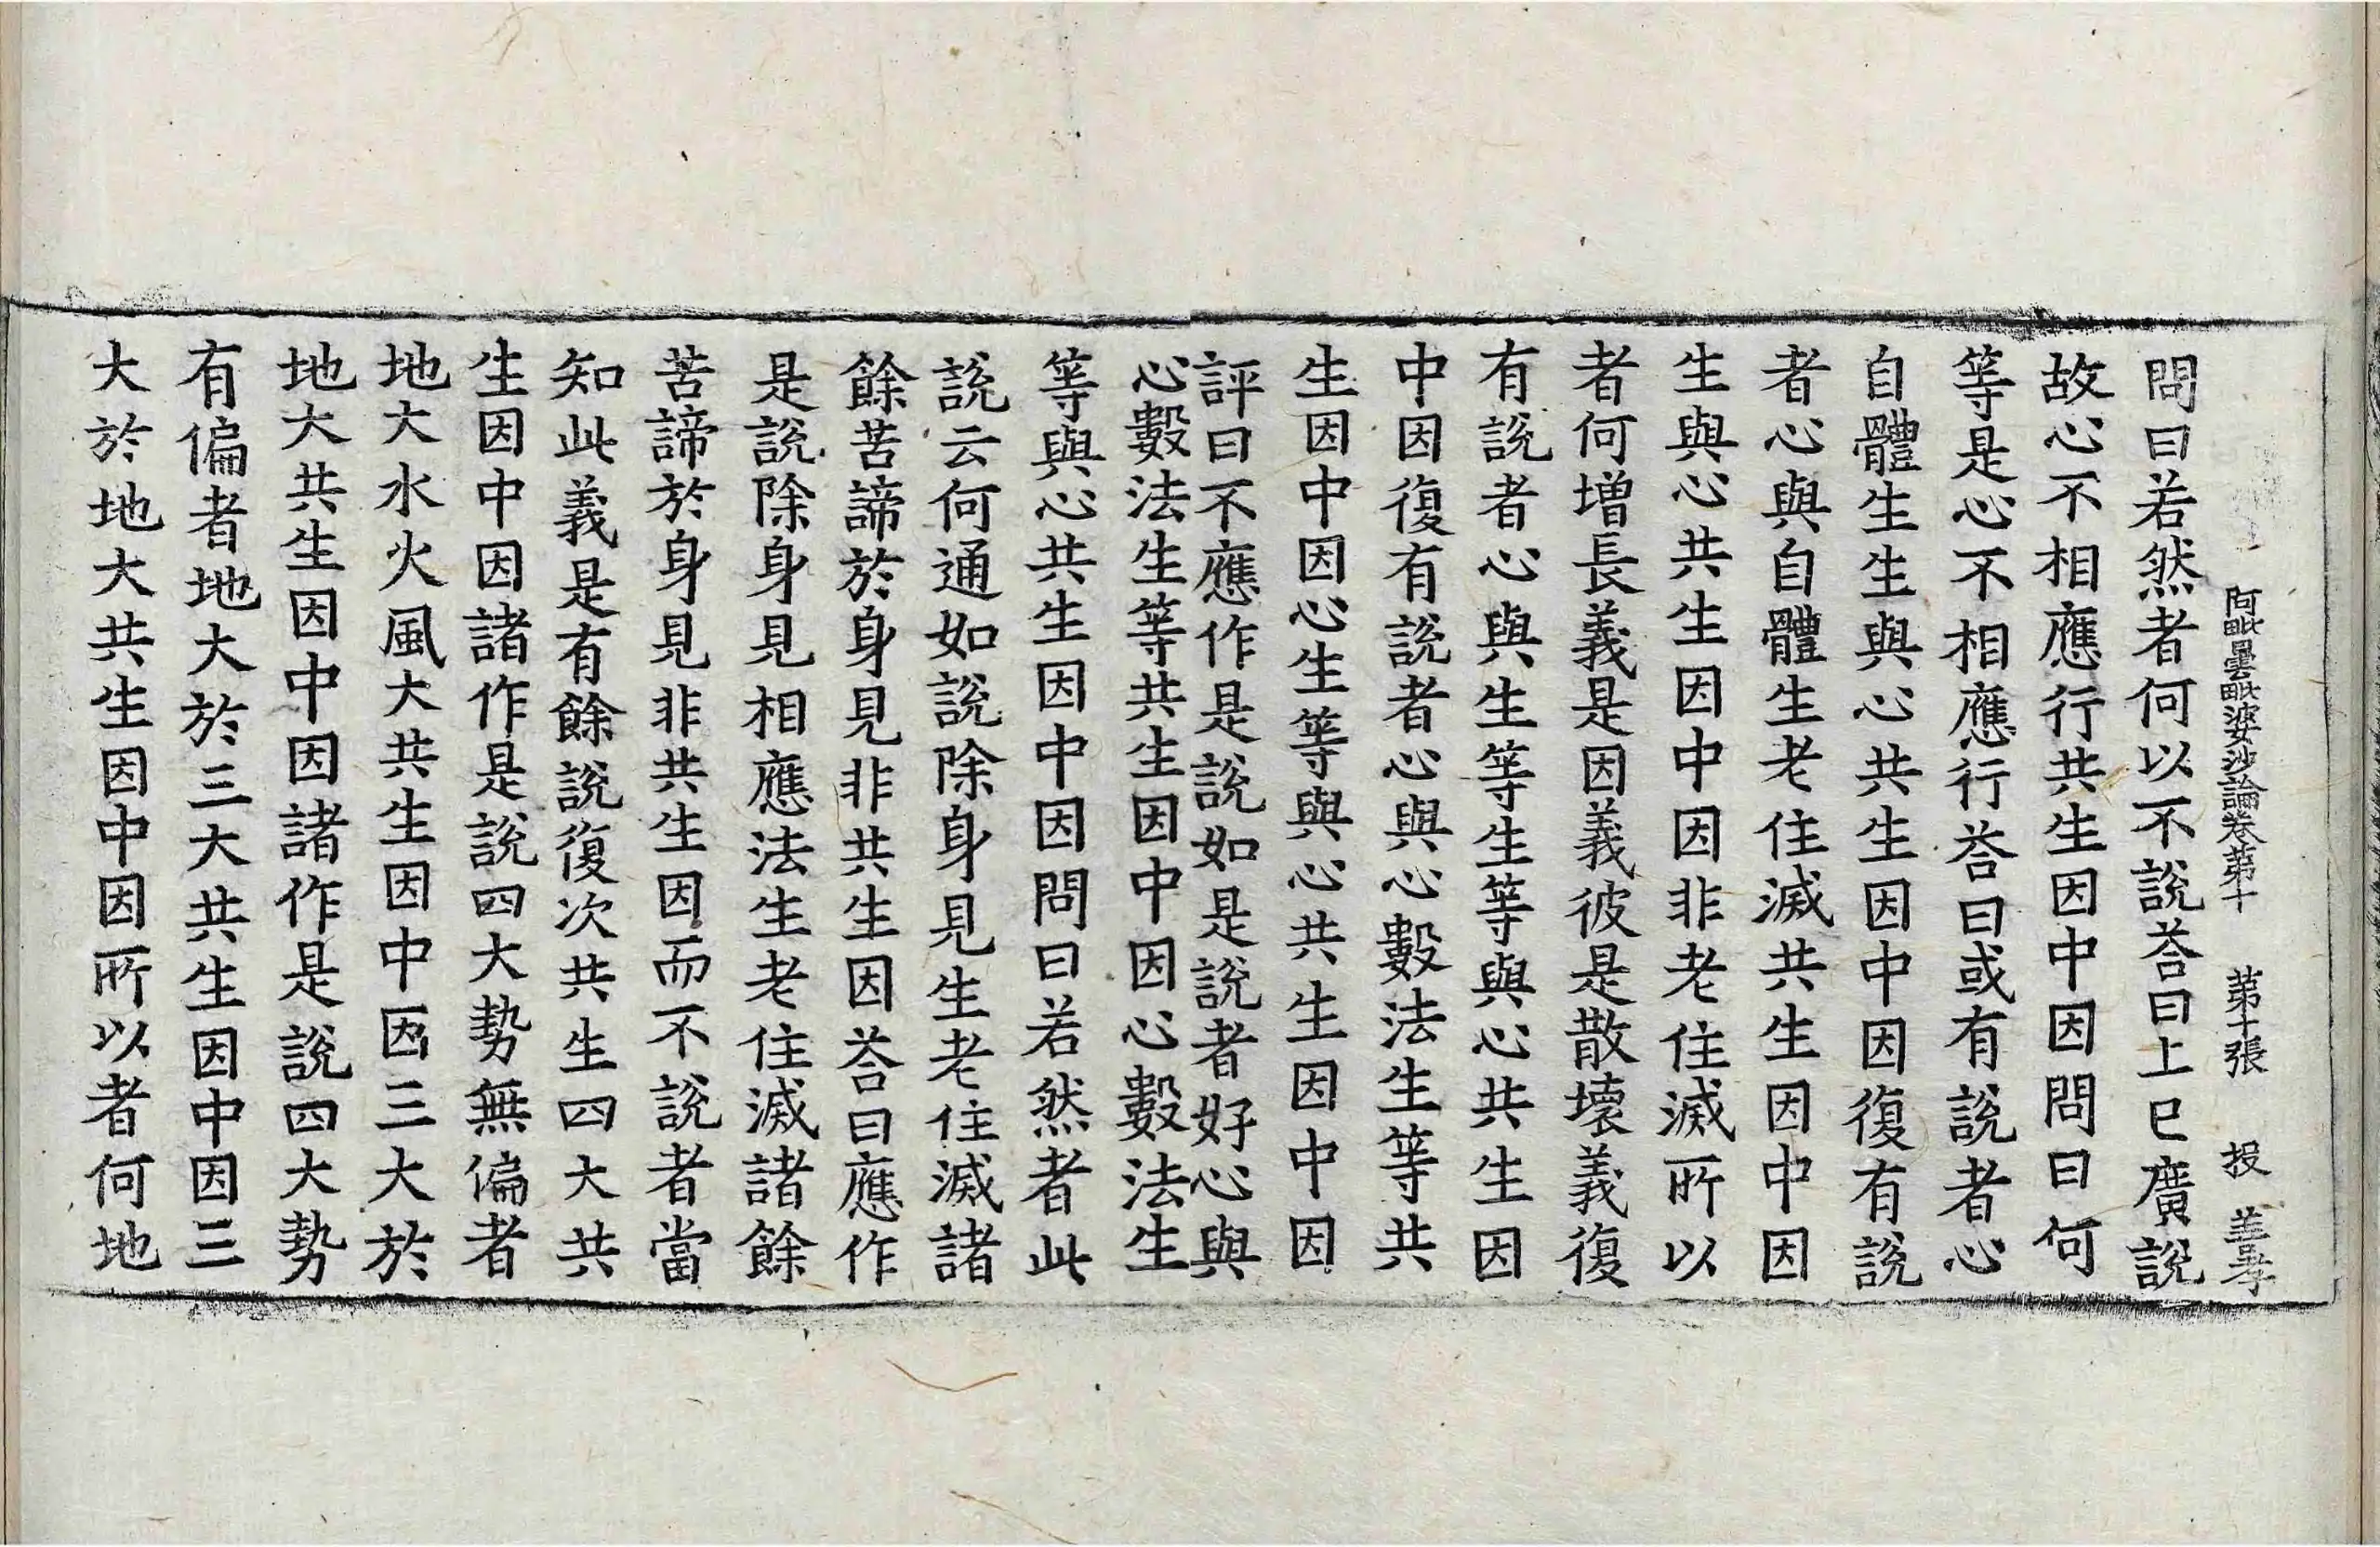 阿毗曇毗婆沙論卷第十　第十張　投　善孝
問曰若然者何以不說荅曰上已廣說
故心不相應行共生因中因問曰何
等是心不相應行荅曰或有說者心
自體生生與心共生因中因復有說
者心與自體生老住滅共生因中因
生與心共生因中因非老住滅所以
者何增長義是因義彼是散壞義復
有說者心與生等生等與心共生因
中因復有說者心與心數法生等共
生因中因心生等與心共生因中因
評曰不應作是說如是說者好心與
心數法生等共生因中因心數法生
等與心共生因中因問曰若然者此
說云何通如說除身見生老住滅諸
餘苦諦於身見非共生因荅曰應作
是說除身見相應法生老住滅諸餘
苦諦於身見非共生因而不說者當
知此義是有餘說復次共生四大共
生因中因諸作是說四大勢無偏者
地大水火風大共生因中因三大於
地大共生因中因諸作是說四大勢
有偏者地大於三大共生因中因三
大於地大共生因中因所以者何地